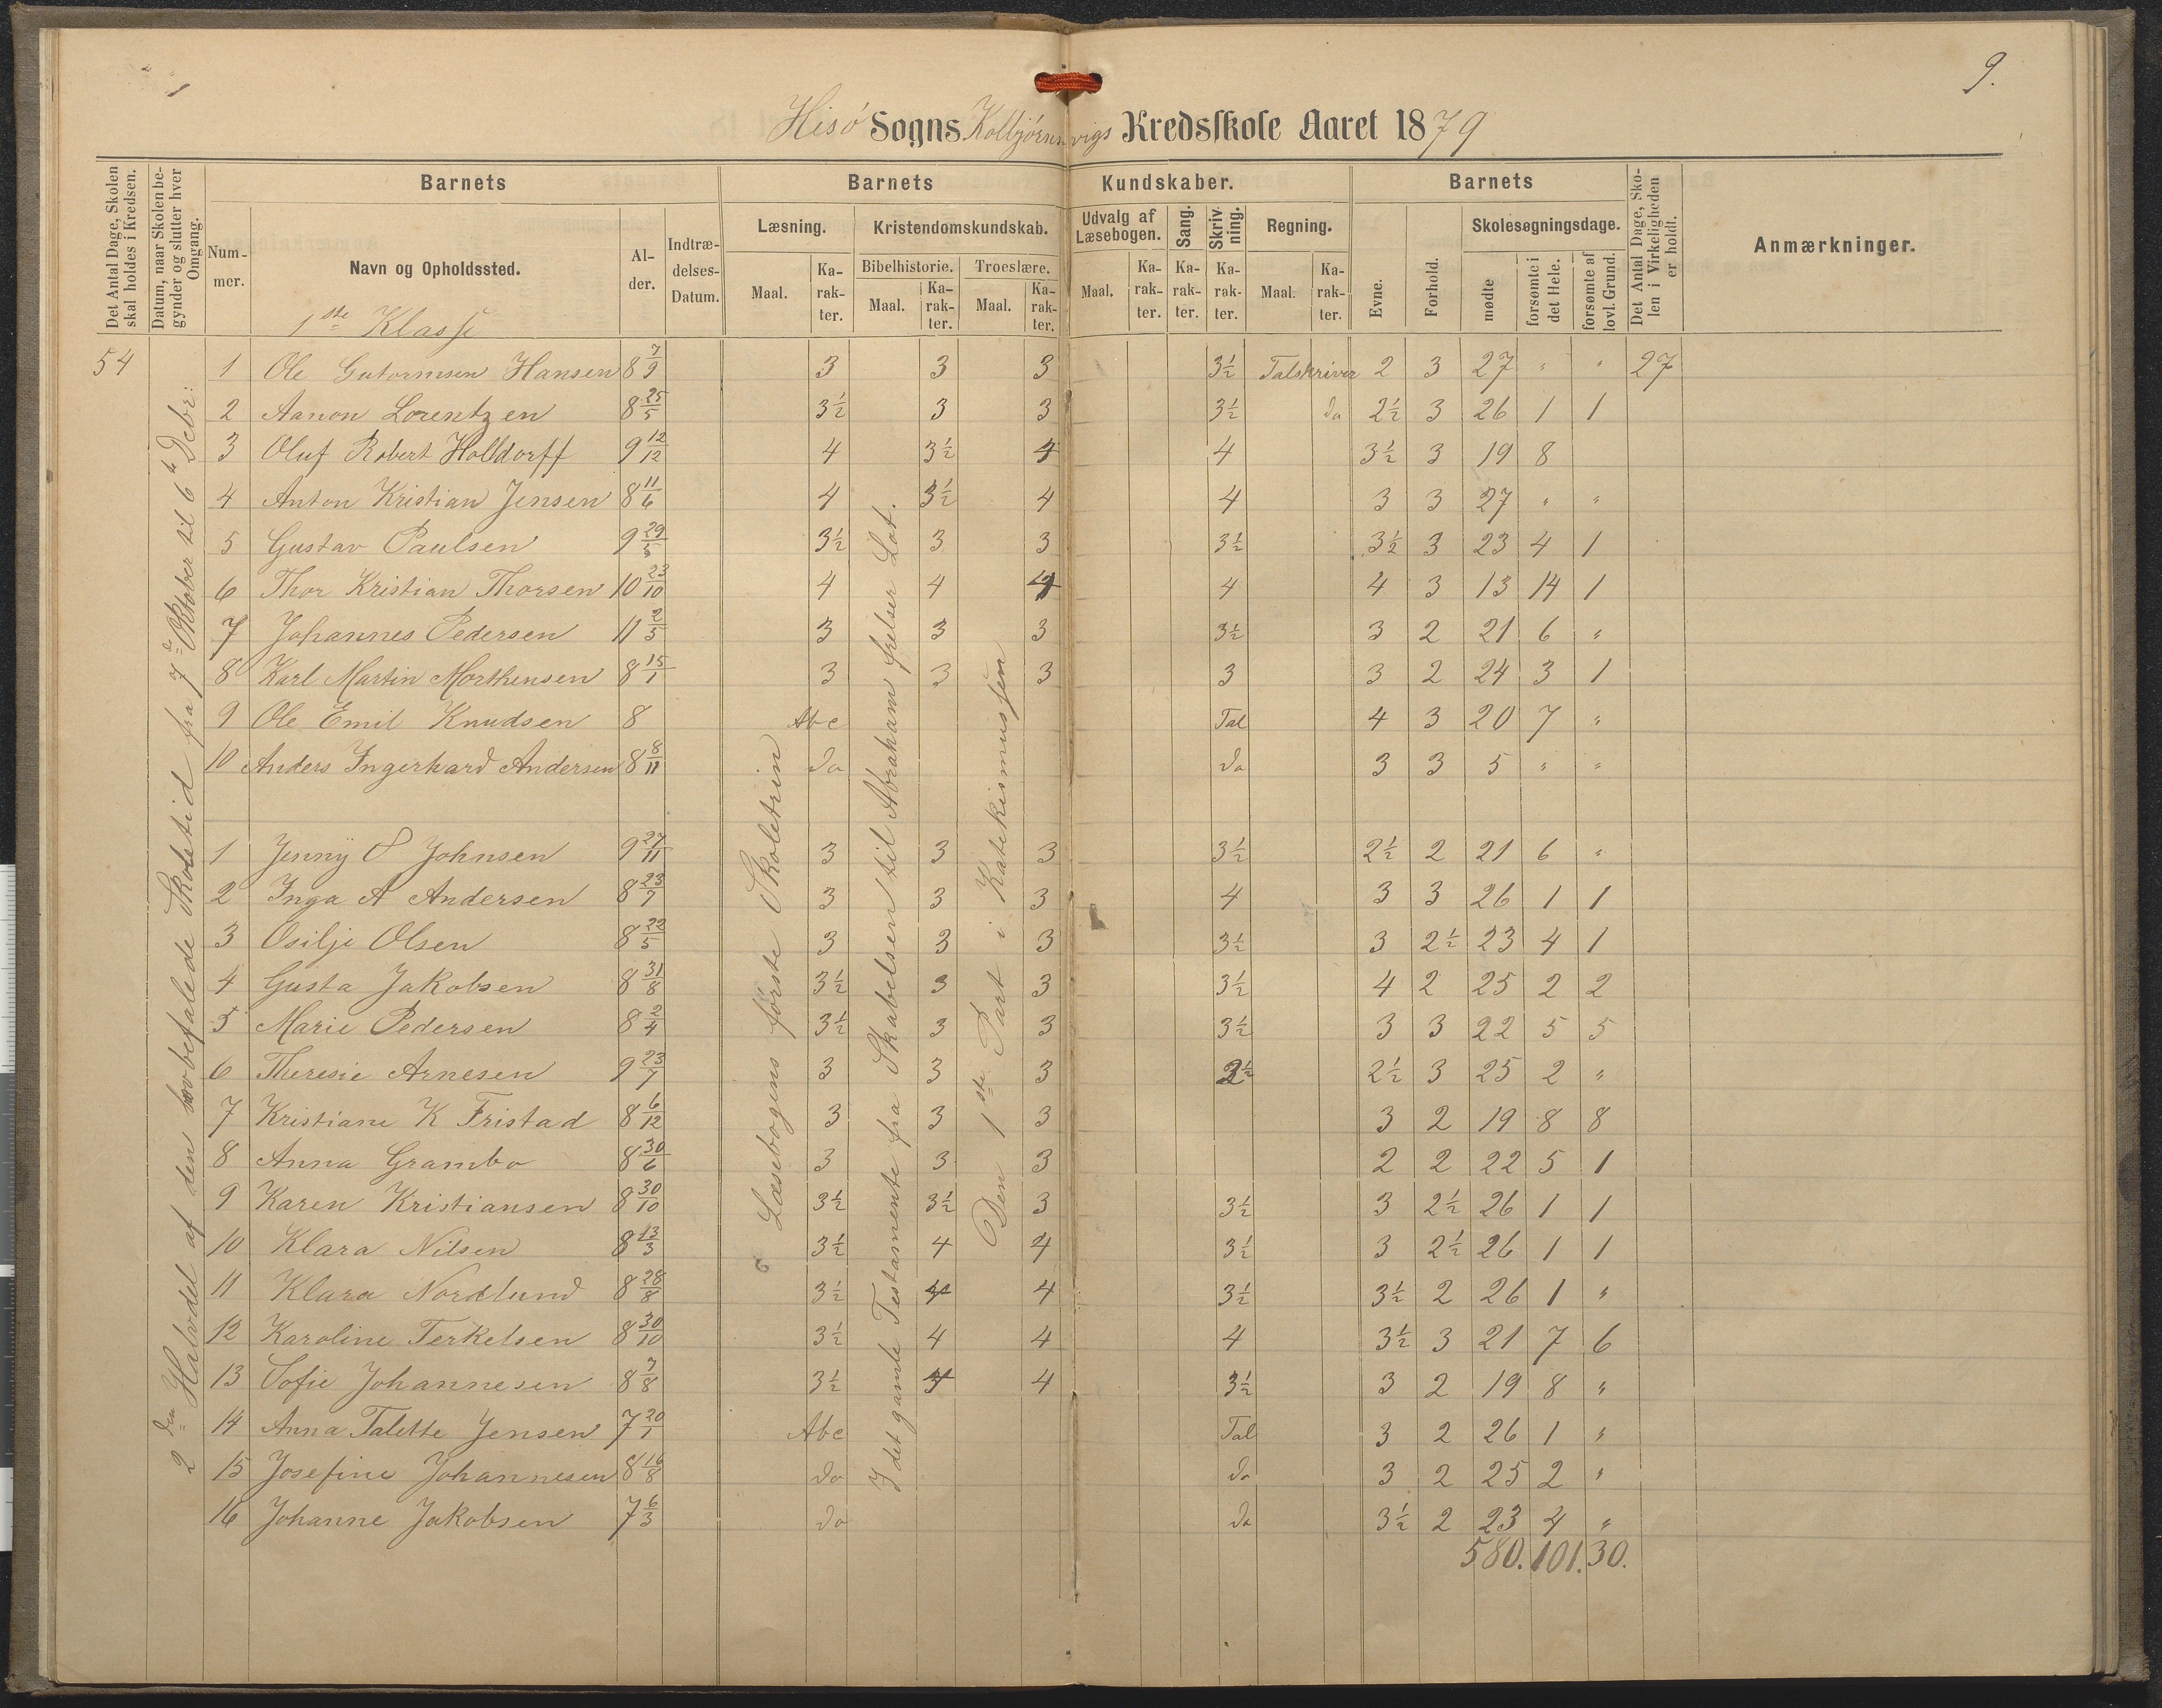 9.
Hisö Sogns Kolbjörnsvigs Kredsskole Aaret 1879
Det Antal Dage, Skolen skal holdes i Kredsen.
Datum, naar Skolen begynder og slutter hver Omgang.
Barnets
Nummer.
Navn og Opholdssted.
Alder.
Indtrædelses-Datum.
Barnets Kundskaber.
Læsning.
Maal.
Karakter.
Kristendomskundskab.
Bibelhistorie.
Maal.
Karakter.
Troeslære.
Maal.
Karakter.
Udvalg af Læsebogen.
Maal.
Karakter.
Sang.
Karakter.
Skrivning.
Karakter.
Regning.
Maal.
Karakter.
Barnets
Evne.
Forhold.
Skolesøgningsdage.
mødte
forsømte i det Hele.
forsømte af lovl. Grund.
Det Antal Dage, Skolen i Virkeligheden er holdt.
Anmærkninger.
1ste Klasse
54
2den Halvdel af den lovbefalede Skoletid fra 7de Oktober til 6te Debr:
Læsebogens förste Skoletrin
I det gamle Testamente fra Skabelsen til Abraham frelser Lot.
Den 1ste Part i Katekismussen
1 Ole Gutormsen Hansen 8 7/9 3 3 3 3½ Talskriver 2 3 27 " " 27
2 Aanon Lorentzen 8 25/5 3½ 3 3 3½ do 2½ 3 26 1 1
3 Oluf Robert Holldorff 9 12/12 4 3½ 4 4 3½ 3 19 8
4 Anton Kristian Jensen 8 11/6 4 3½ 4 4 3 3 27 " "
5 Gustav Paulsen 9 29/5 3½ 3 3 3½ 3½ 3 23 4 1
6 Thor Kristian Thorsen 10 23/10 4 4 4 4 4 3 13 14 1
7 Johannes Pedersen 11 2/5 3 3 3 3½ 3 2 21 6 "
8 Karl Martin Morthensen 8 15/1 3 3 3 3 3 2 24 3 1
9 Ole Emil Knudsen 8 Abc Tal 4 3 20 7 "
10 Anders Ingerhard Andersen 8 8/11 do do 3 3 5 " "
1 Jenny O Johnsen 9 27/11 3 3 3 3½ 2½ 2 21 6 "
2 Inga A Andersen 8 23/7 3 3 3 4 3 3 26 1 1
3 Osilje Olsen 8 22/5 3 3 3 3½ 3 2½ 23 4 1
4 Gusta Jakobsen 8 31/8 3½ 3 3 3½ 4 2 25 2 2
5 Marie Pedersen 8 2/4 3½ 3 3 3½ 3 3 22 5 5
6 Theresie Arnesen 9 23/7 3 3 3 3½ 2½ 3 25 2 "
7 Kristiane K Fristad 8 6/12 3 3 3 3 2 19 8 8
8 Anna Grambo 8 30/6 3 3 3 2 2 22 5 1
9 Karen Kristiansen 8 30/10 3½ 3½ 3 3½ 3 2½ 26 1 1
10 Klara Nilsen 8 13/3 3½ 4 4 3½ 3 2½ 26 1 1
11 Klara Nordlund 8 28/8 3½ 4 4 3½ 3½ 2 26 1 "
12 Karoline Terkelsen 8 30/10 3½ 4 4 4 3½ 3 21 7 6
13 Sofie Johannesen 8 7/8 3½ 4 4 3½ 3 2 19 8 "
14 Anna Talette Jensen 7 20/1 Abc Tal 3 2 26 1 "
15 Josefine Johannesen 8 16/8 do do 3 2 25 2 "
16 Johanne Jakobsen 7 6/3 do do 3½ 2 23 4 "
580. 101. 30.